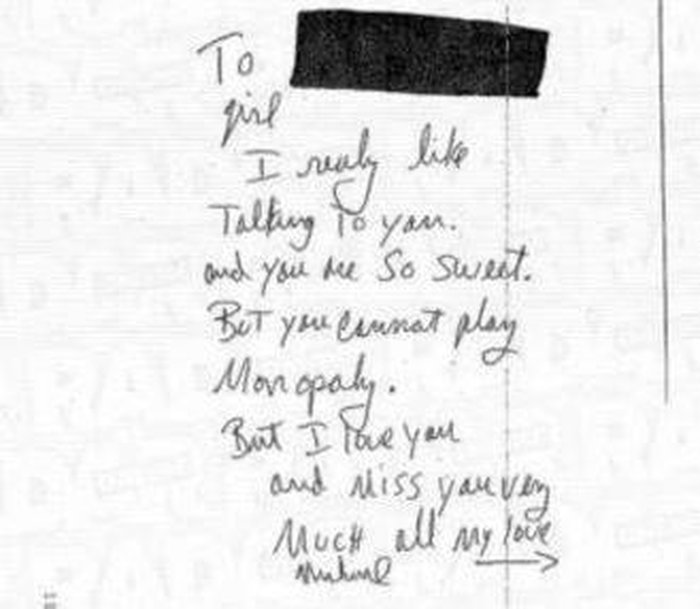 To
girl
I realy like
Talking To you.
and you are So sweet.
But you cannot play
Monopoly.
But I love you
and Miss you very
Much all my love
Michael